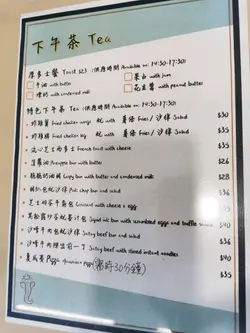 下午茶 Tea
厚多士餐 Toast $23 (供應時間 /Available on: 14:30-17:30)
牛油 with butter
果占 with jam
煉奶 with condensed milk
花生醬 with peanut butter
特色下午茶 Tea (供應時間 /Available on: 14:30-17:30)
炒雞翼 Fried chicken wings 配 with 薯條 Fries / 沙律 Salad $30
炸雞髀 Fried chicken leg 配 with 薯條 Fries / 沙律 Salad $35
流心芝士西多士 French toast with cheese $35
菠蘿油 Pineapple bun with butter $26
脆脆奶油豬 Crispy bun with butter and condensed milk $28
豬扒包配沙律 Pork chop bun and salad $36
芝士加蛋牛角包 Croissant with cheese & egg $35
黑松露炒蛋墨汁包 Squid ink bun with scrambled eggs and truffle sauce $40
沙嗲牛肉包配沙律 Satay beef bun and salad $36
沙嗲牛肉撈出前一丁 Satay beef with stired instant noodles $40
夏威夷Pizza Hawaiian pizza (需時30分鐘) $35